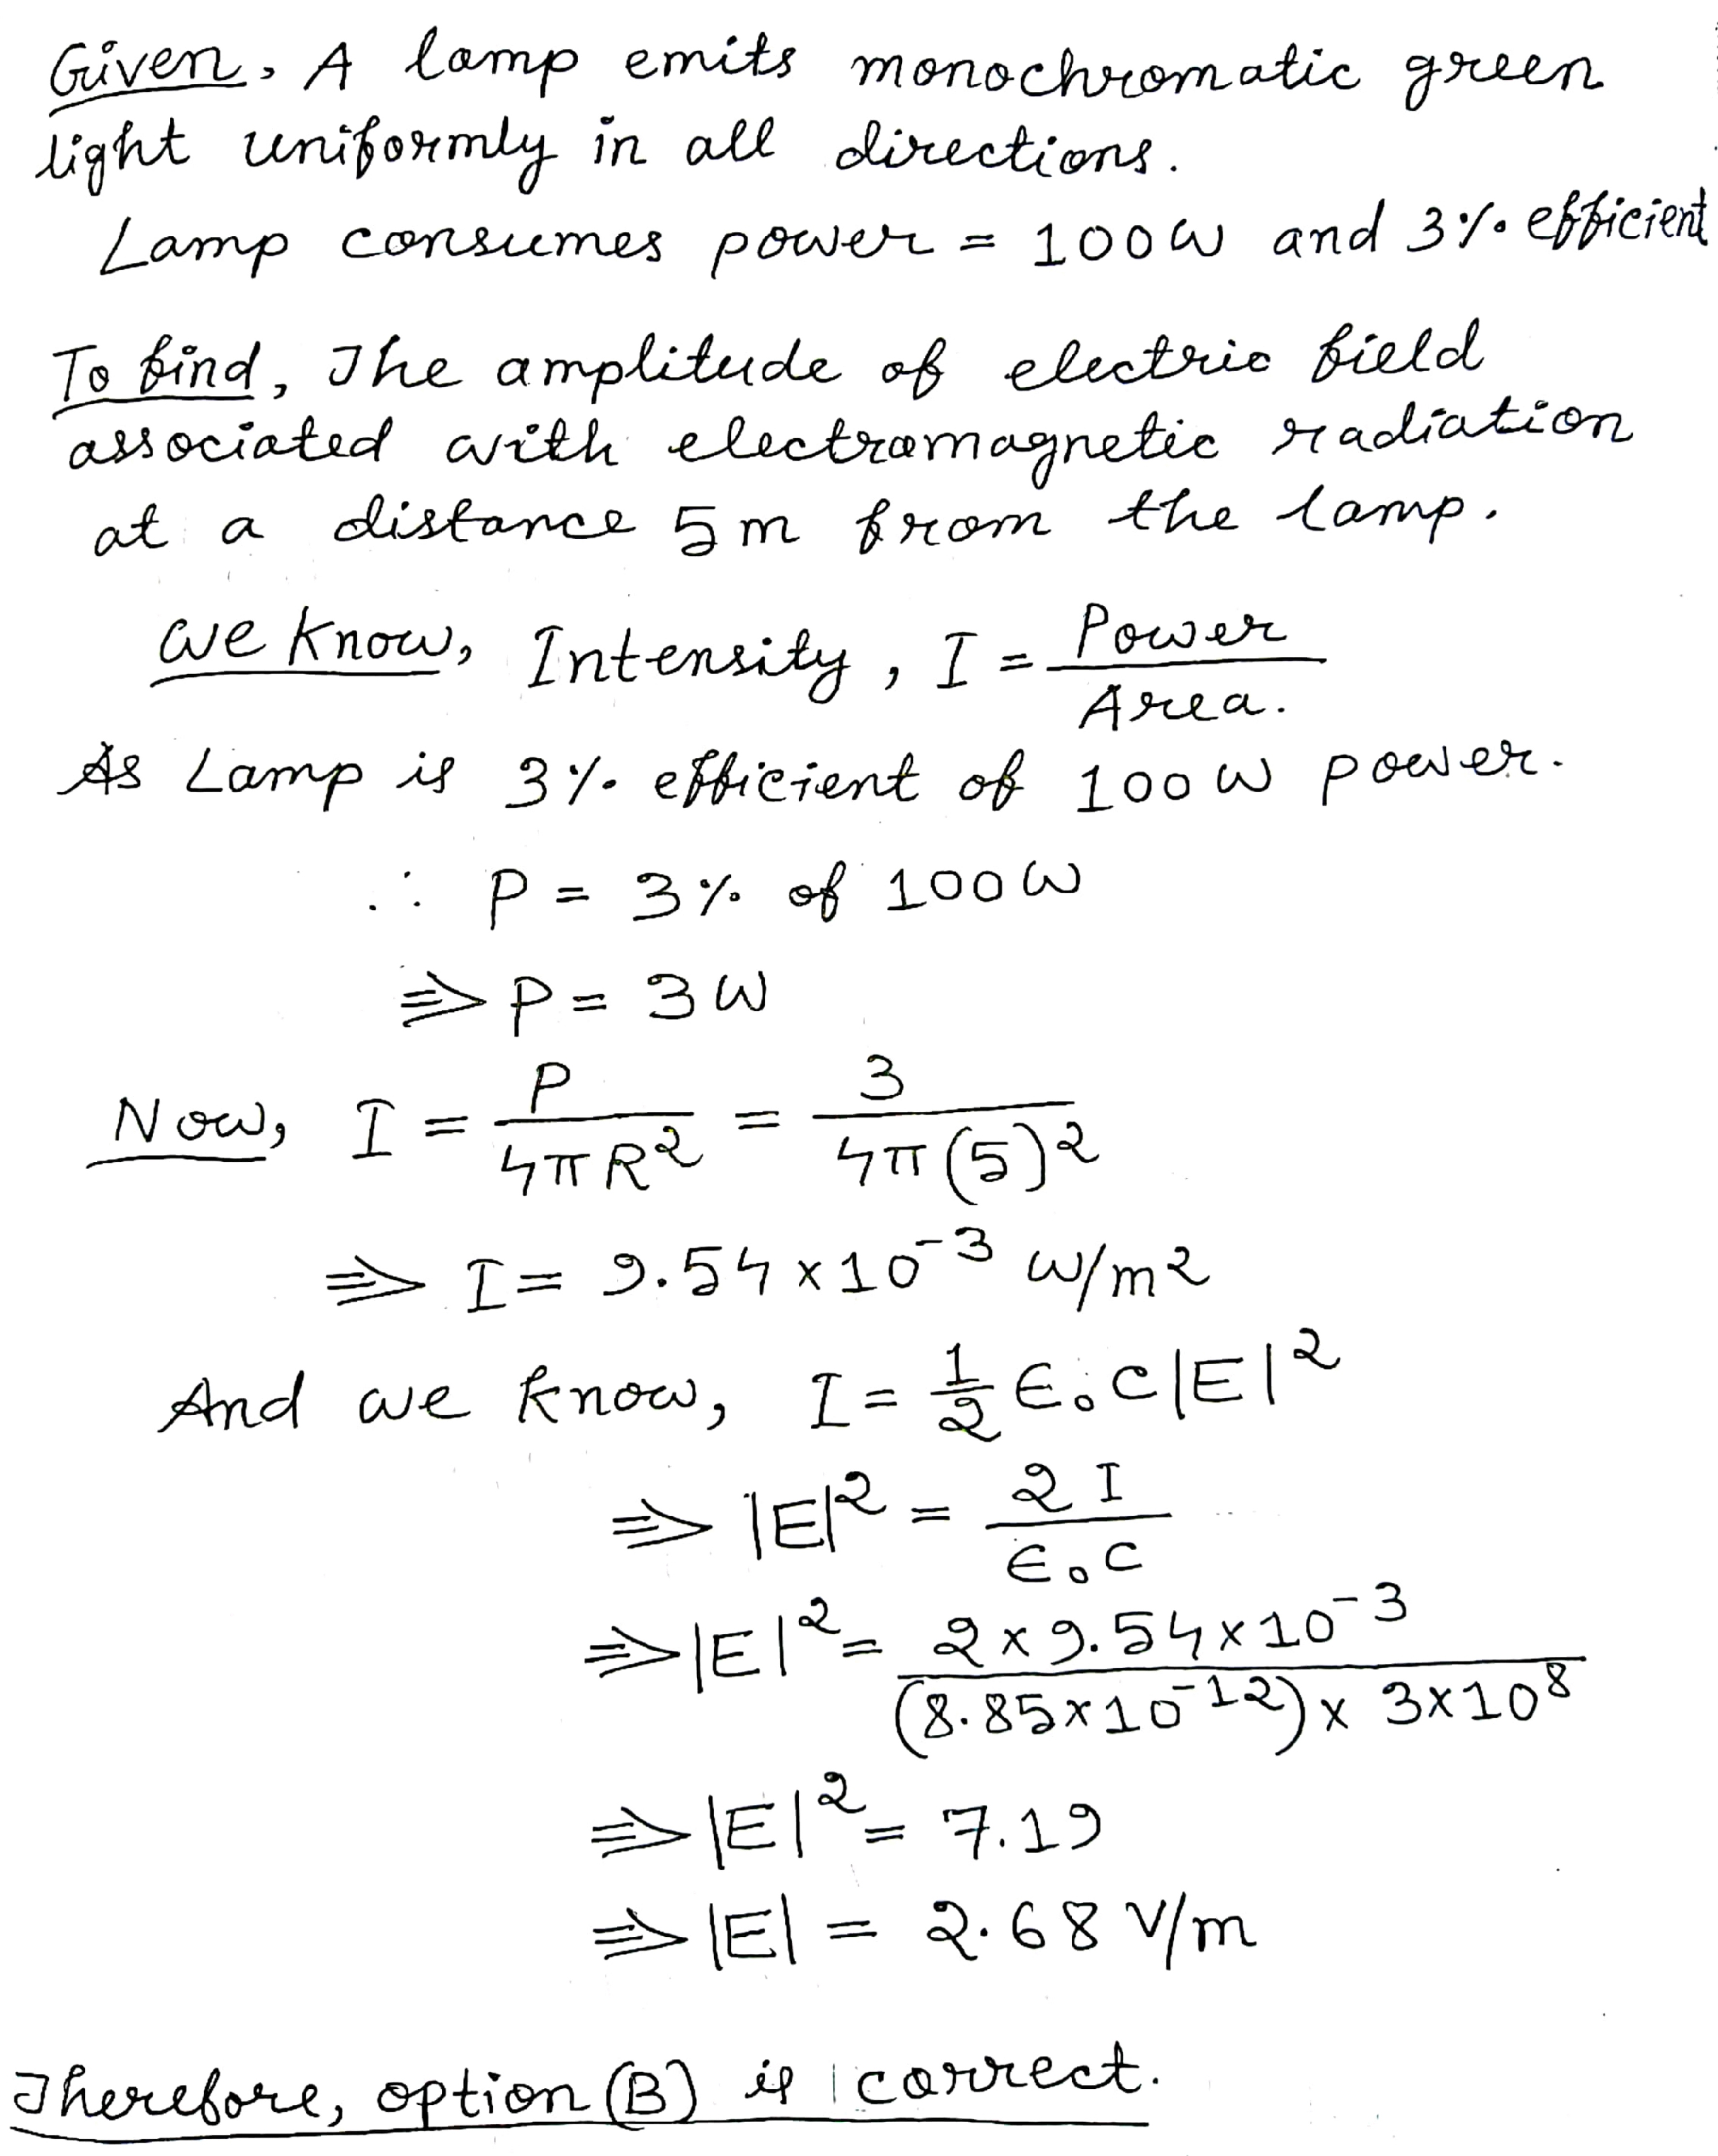 Given, A lamp emits monochromatic green
light uniformly in all directions.
Lamp consumes power = 100W and 3% efficient
To find, The amplitude of electric field
associated with electromagnetic radiation
at a distance 5m from the lamp.
We know, Intensity, I = Power / Area.
As Lamp is 3% efficient of 100W power.
∴ P = 3% of 100W
⇒ P = 3W
Now, I = P / 4πR² = 3 / 4π(5)²
⇒ I = 9.54 × 10⁻³ W/m²
And we know, I = 1/2 ϵ₀C|E|²
⇒ |E|² = 2I / ϵ₀C
⇒ |E|² = 2 × 9.54 × 10⁻³ / (8.85 × 10⁻¹²) × 3 × 10⁸
⇒ |E|² = 7.19
⇒ |E| = 2.68 V/m
Therefore, option (B) is correct.